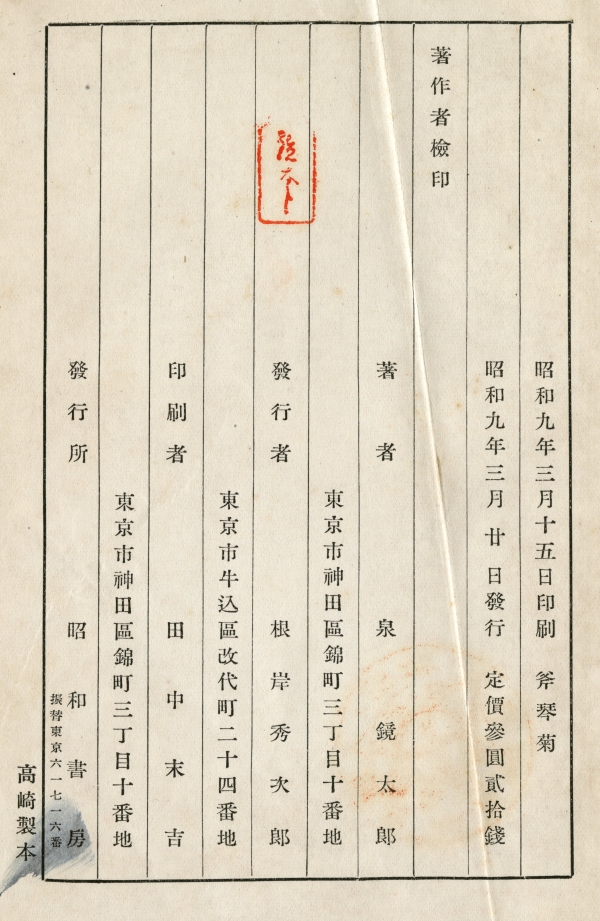 昭和九年三月十五日印刷　斧琴菊
昭和九年三月廿日發行　定價參圓貳拾錢
著作者檢印
著者　泉鏡太郎
東京市神田區錦町三丁目十番地
發行者　根岸秀次郎
東京市牛込區改代町二十四番地
印刷者　田中末吉
東京市神田區錦町三丁目十番地
發行所　昭和書房
振替東京六一七一六番
高崎製本